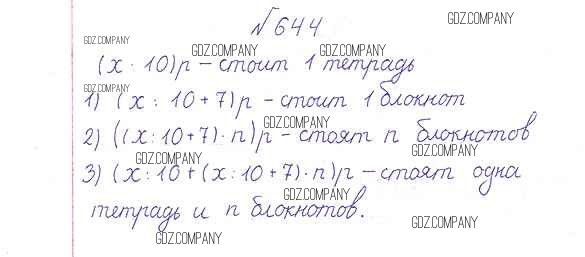 №644
GDZ.COMPANY
GDZ.COMPANY GDZ.COMPANY GDZ.COMPANY
(x : 10)р – стоит 1 тетрадь
GDZ.COMPANY
1) (x : 10 + 7)р – стоит 1 блокнот
GDZ.COMPANY
2) ((x : 10 + 7) · n)р – стоят n блокнотов
GDZ.COMPANY GDZ.COMPANY
3) (x : 10 + (x : 10 + 7) · n)р – стоят одна
GDZ.COMPANY
тетрадь и n блокнотов.
GDZ.COMPANY
GDZ.COMPANY